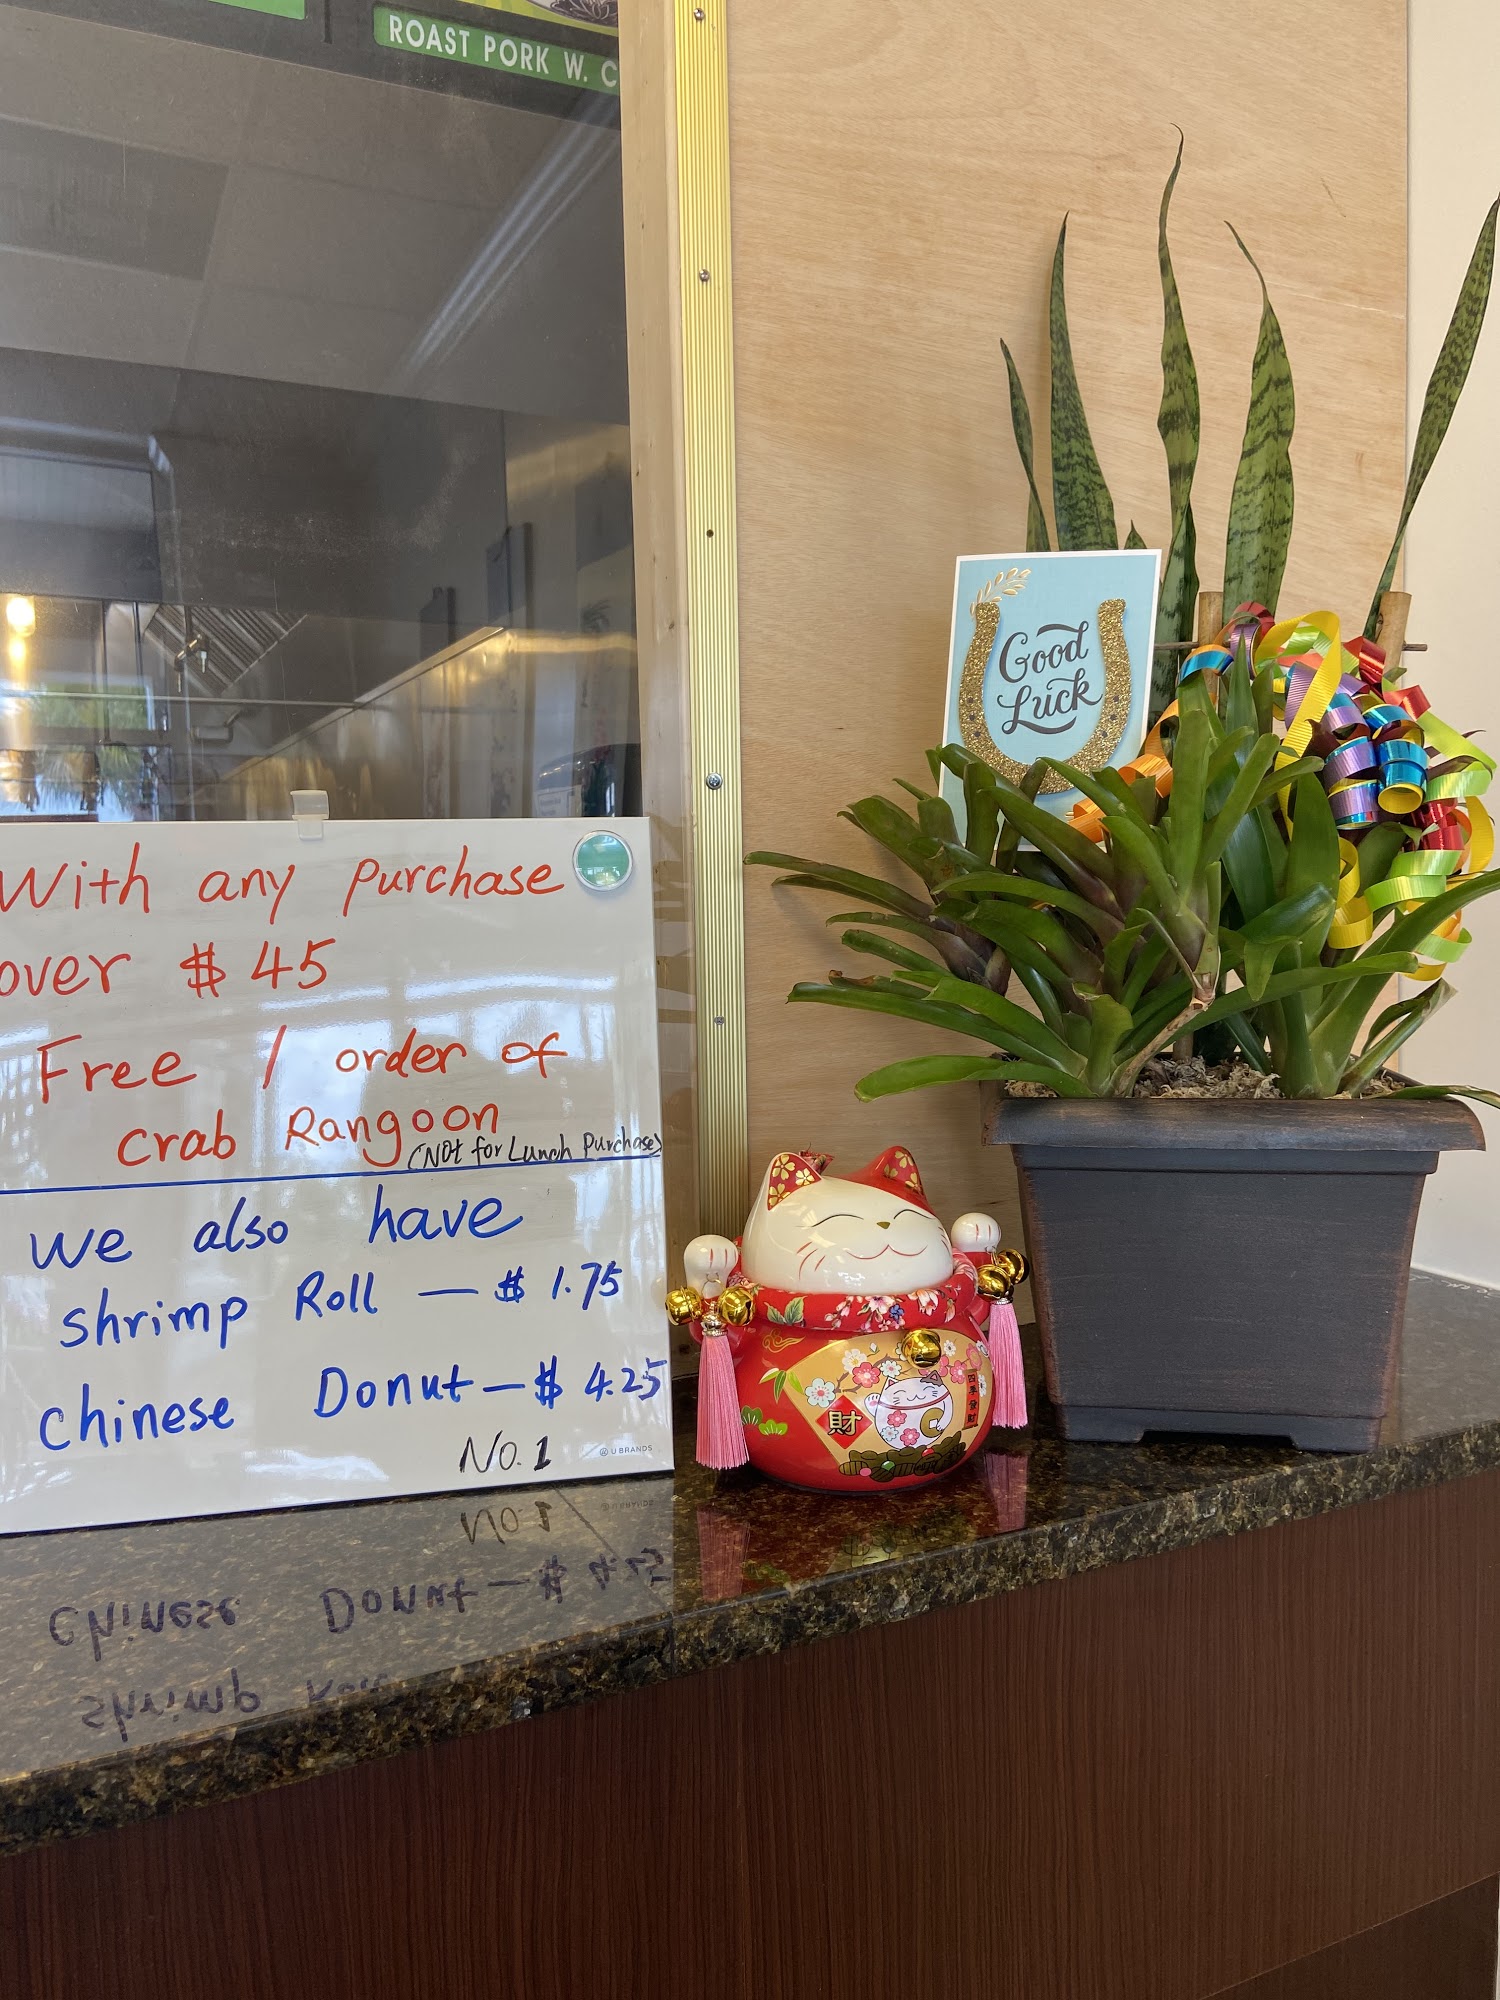 ROAST PORK W. C
With any purchase
over $45
Free 1 order of
crab Rangoon
(Not for Lunch Purchase)
we also have
shrimp Roll — $1.75
chinese Donut — $4.25
No.1
U BRANDS
Good
Luck
財
四季發財